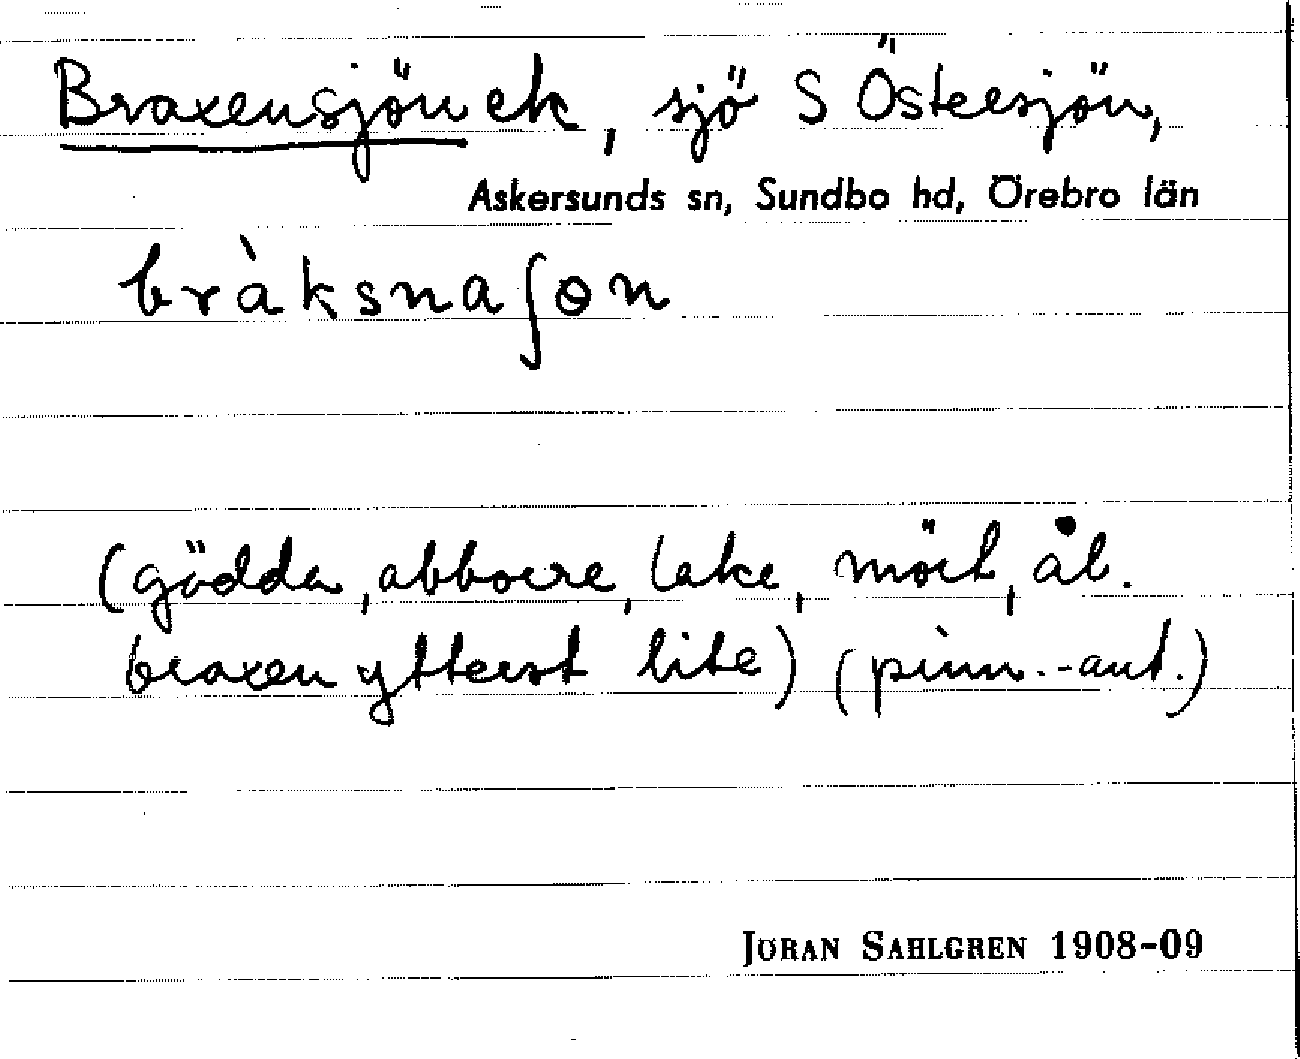 Braxensjön ek, sjö S Östersjön,
Askersunds sn, Sundbo hd, Örebro län
bràksnaʃɵn
(gödda, abborre, lake, mört, ål.
braxen ytterst lite) (pinn.-ant.)
JÖRAN SAHLGREN 1908-09